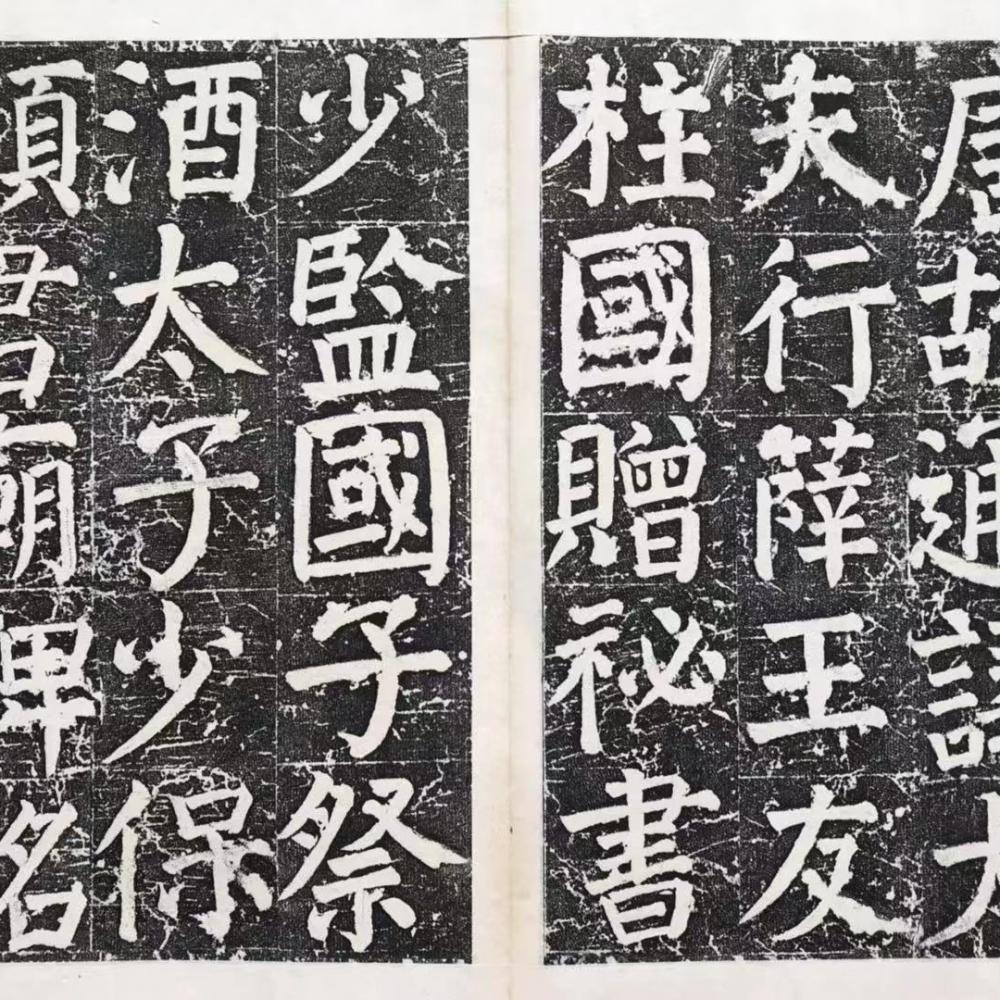 唐故通議大
夫行薛王友
柱國贈祕書
少監國子祭
酒太子少保
顏君廟碑銘